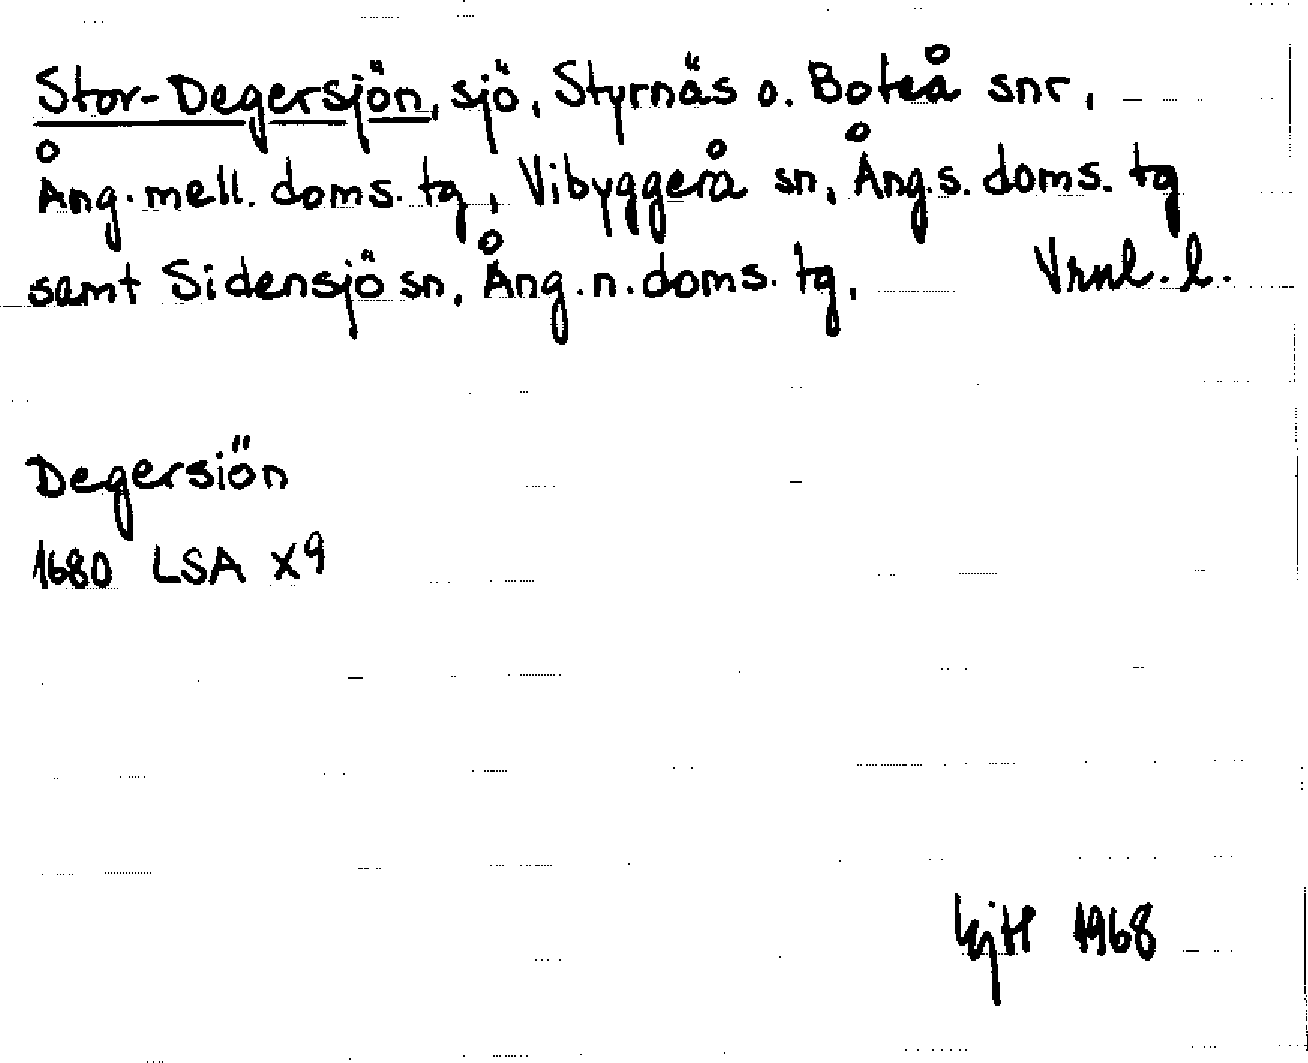 Stor-Degersjön, sjö, Styrnäs o. Boteå snr,
Ång. mell. doms. tg, Vibyggerå sn, Ång. s. doms. tg
samt Sidensjö sn, Ång. n. doms. tg. Vrnl. l.
Degersiön
1680 LSA X9
1968